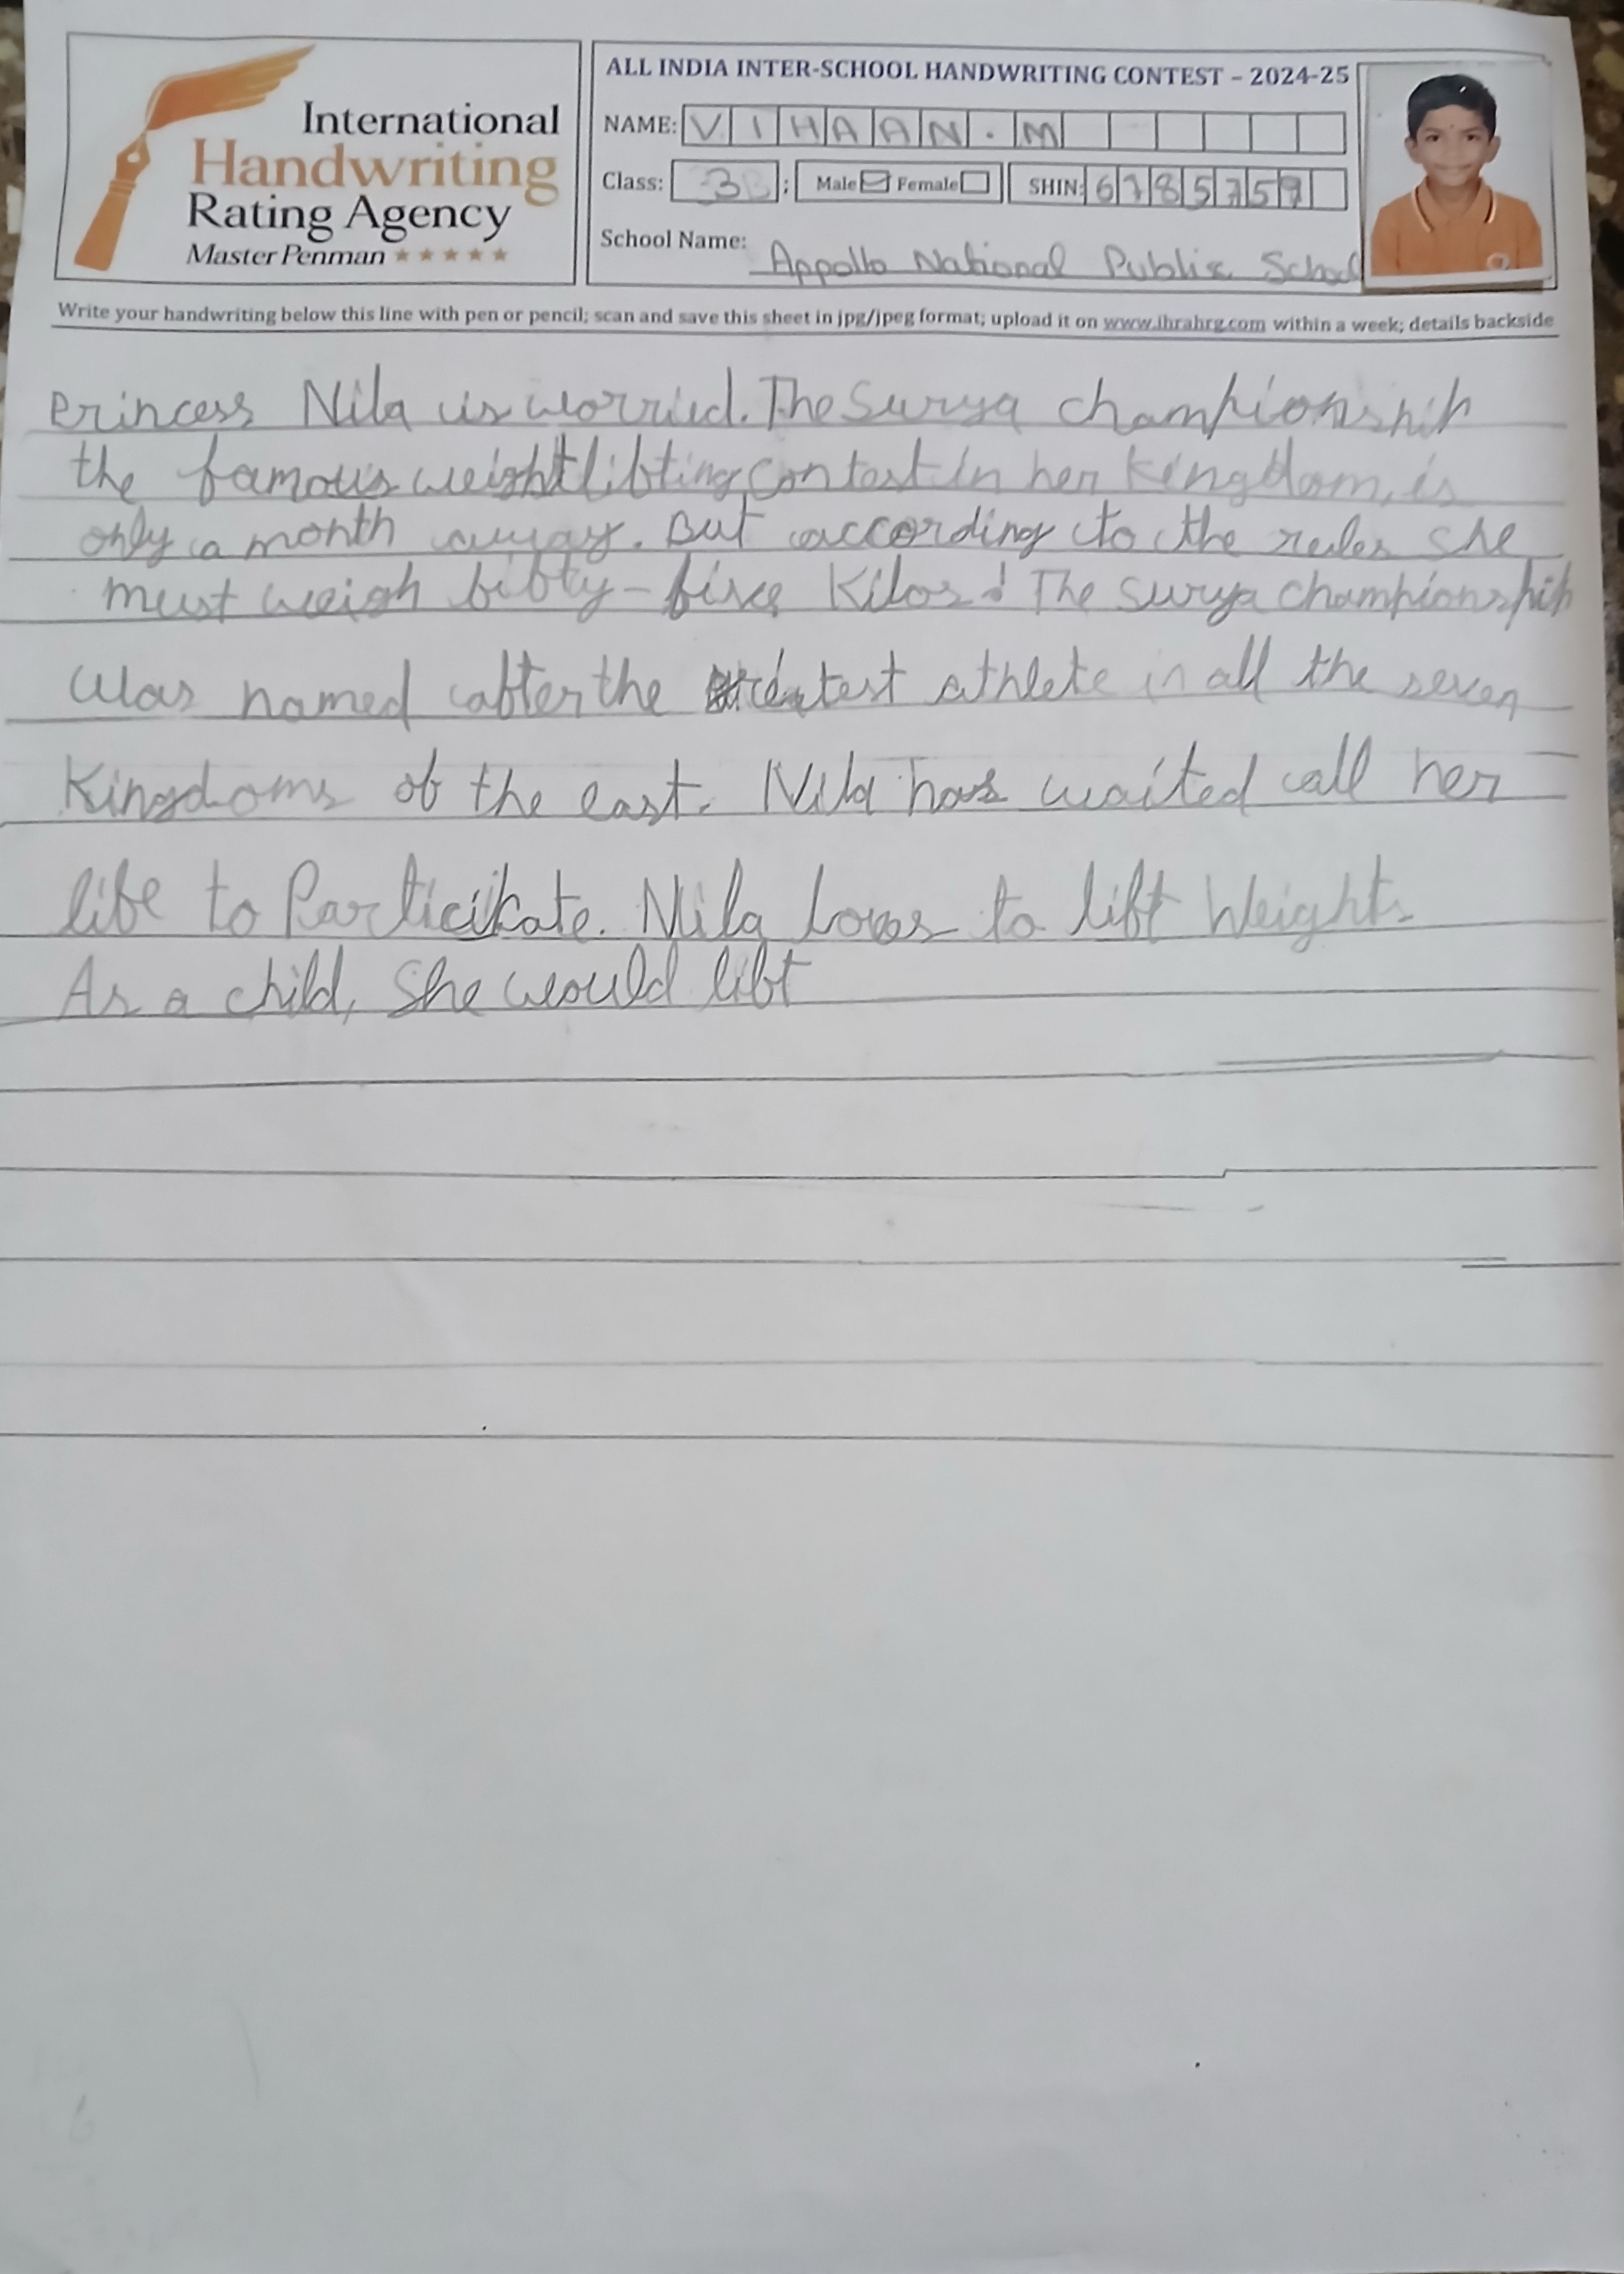 International
Handwriting
Rating Agency
Master Penman ★★★★★
ALL INDIA INTER-SCHOOL HANDWRITING CONTEST – 2024-25
NAME: VIHAAN.M
Class: 3B ; Male Female SHIN: 6785759
School Name: Appollo National Public School
Write your handwriting below this line with pen or pencil; scan and save this sheet in jpg/jpeg format; upload it on www.ihrahrg.com within a week; details backside
Princess Nila is worried. The Surya championship
the famous weightlifting contest in her kingdom, is
only a month away. But according to the rules she
must weigh fifty-five Kilos! The surya championship
was named after the athlete in all the seven
Kingdoms of the east. Nila has waited all her
life to Participate. Nila Loves to lift Weights
As a child, She would lift